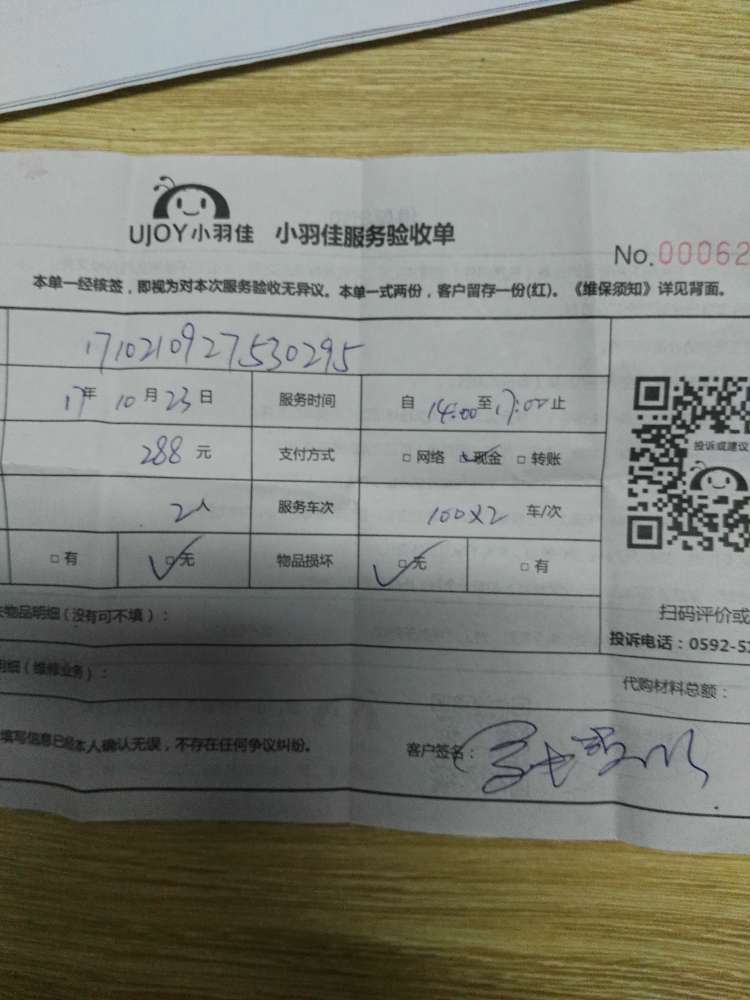 UJOY小羽佳 小羽佳服务验收单
No.00062
本单一经核签，即视为对本次服务验收无异议。本单一式两份，客户留存一份(红)。《维保须知》详见背面。
171021092753029​5
17年 10月23日 服务时间 自 14:00至17:00止
288 元 支付方式 □网络 ☑现金 □转账
投诉或建议
2人 服务车次 100X2 车/次
□有 ☑无 物品损坏 ☑无 □有
物品明细（没有可不填）：
扫码评价或
投诉电话：0592-5
明细（维修业务）：
代购材料总额：
填写信息已经本人确认无误，不存在任何争议纠纷。 客户签名：